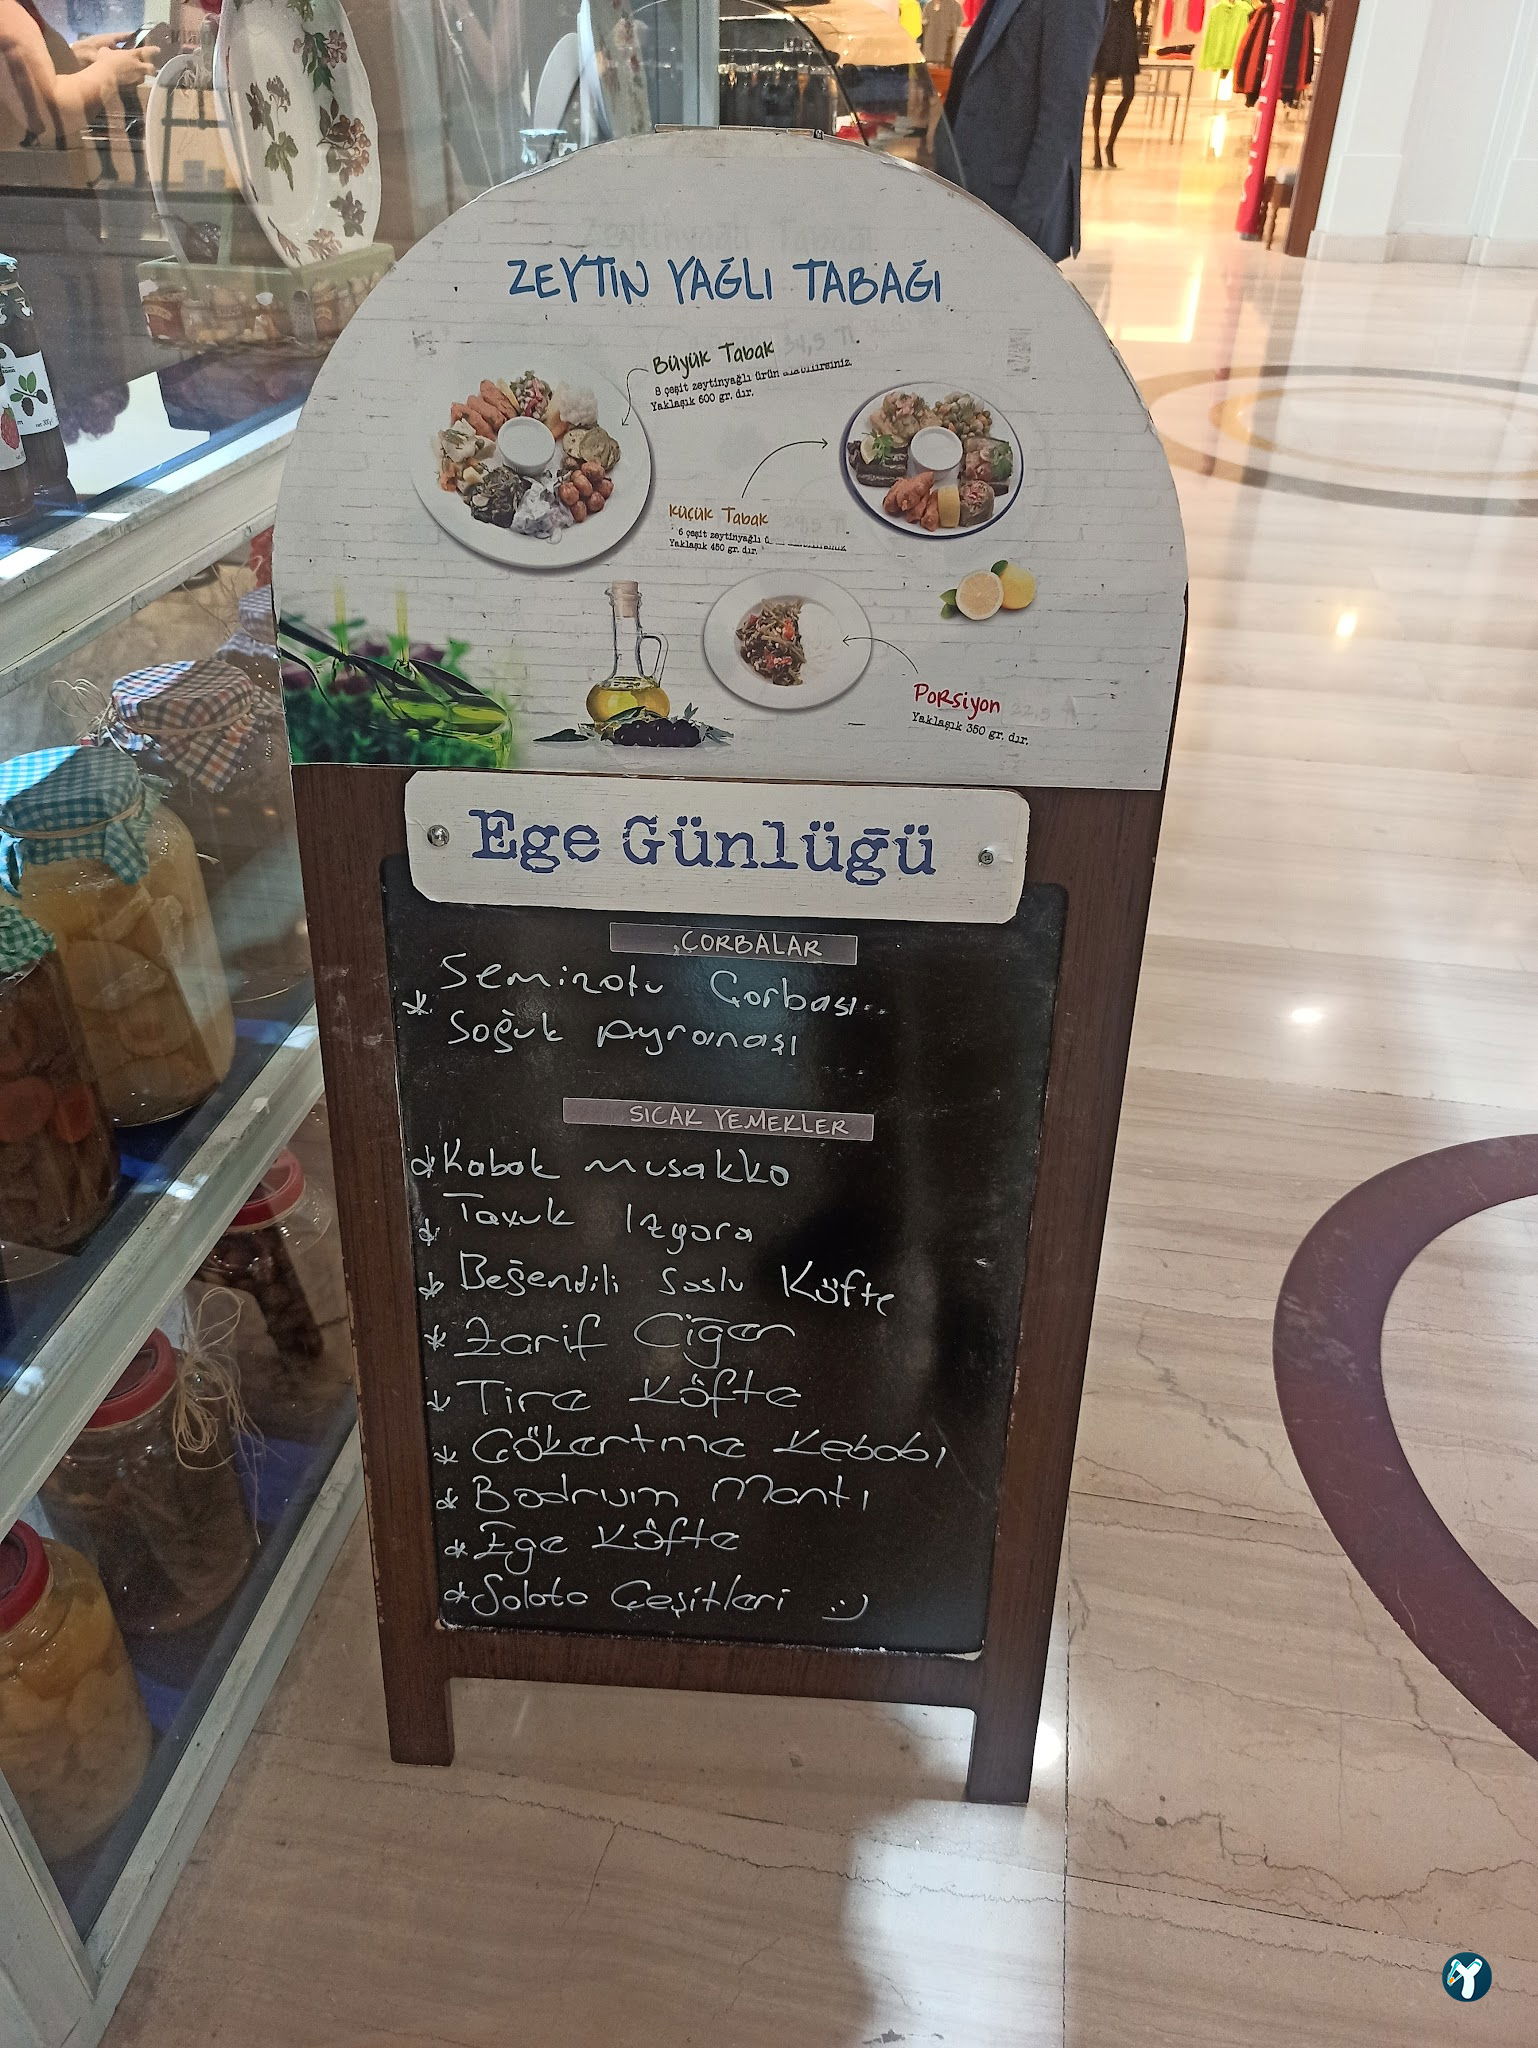 ZEYTİN YAĞLI TABAĞI
Büyük Tabak
8 çeşit zeytinyağlı ürün alabilirsiniz.
Yaklaşık 600 gr. dır.
Küçük Tabak
6 çeşit zeytinyağlı
Yaklaşık 450 gr. dır.
Porsiyon
Yaklaşık 350 gr. dır.
Ege Günlüğü
ÇORBALAR
Semizotu Çorbası
* Soğuk Ayranaşı
SICAK YEMEKLER
* Kabak musakka
* Tavuk Izgara
* Beğendili Soslu Köfte
* Zarif Ciğer
* Tire Köfte
* Çökertme Kebabı
* Bodrum Mantı
* Ege Köfte
* Salata Çeşitleri :)